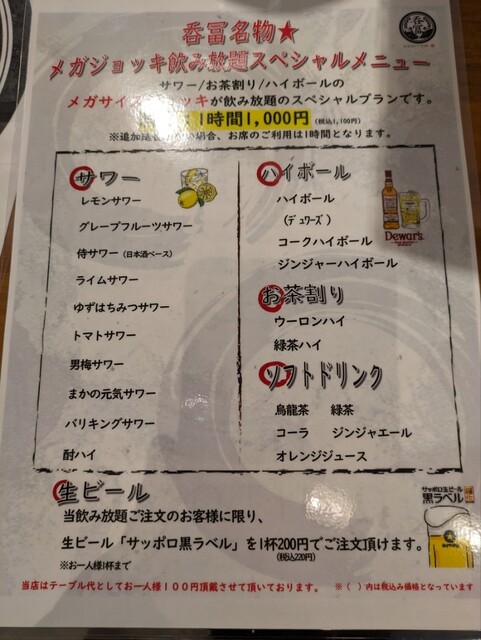 呑冨名物★
メガジョッキ飲み放題スペシャルメニュー
サワー/お茶割り/ハイボールの
メガサイズジョッキが飲み放題のスペシャルプランです。
1時間1,000円 (税込1,100円)
の場合、お席のご利用は1時間となります。
サワー
レモンサワー
グレープフルーツサワー
侍サワー (日本酒ベース)
ライムサワー
ゆずはちみつサワー
トマトサワー
男梅サワー
まかの元気サワー
バリキングサワー
酎ハイ
ハイボール
ハイボール
(デュワーズ)
コークハイボール
ジンジャーハイボール
Dewar's
お茶割り
ウーロンハイ
緑茶ハイ
ソフトドリンク
烏龍茶 緑茶
コーラ ジンジャエール
オレンジジュース
生ビール
当飲み放題ご注文のお客様に限り、
生ビール「サッポロ黒ラベル」を1杯200円でご注文頂けます。
(税込220円)
※お一人様1杯まで
サッポロ生ビール
黒ラベル
当店はテーブル代としてお一人様100円頂戴させて頂いております。 ※( )内は税込み価格となっています